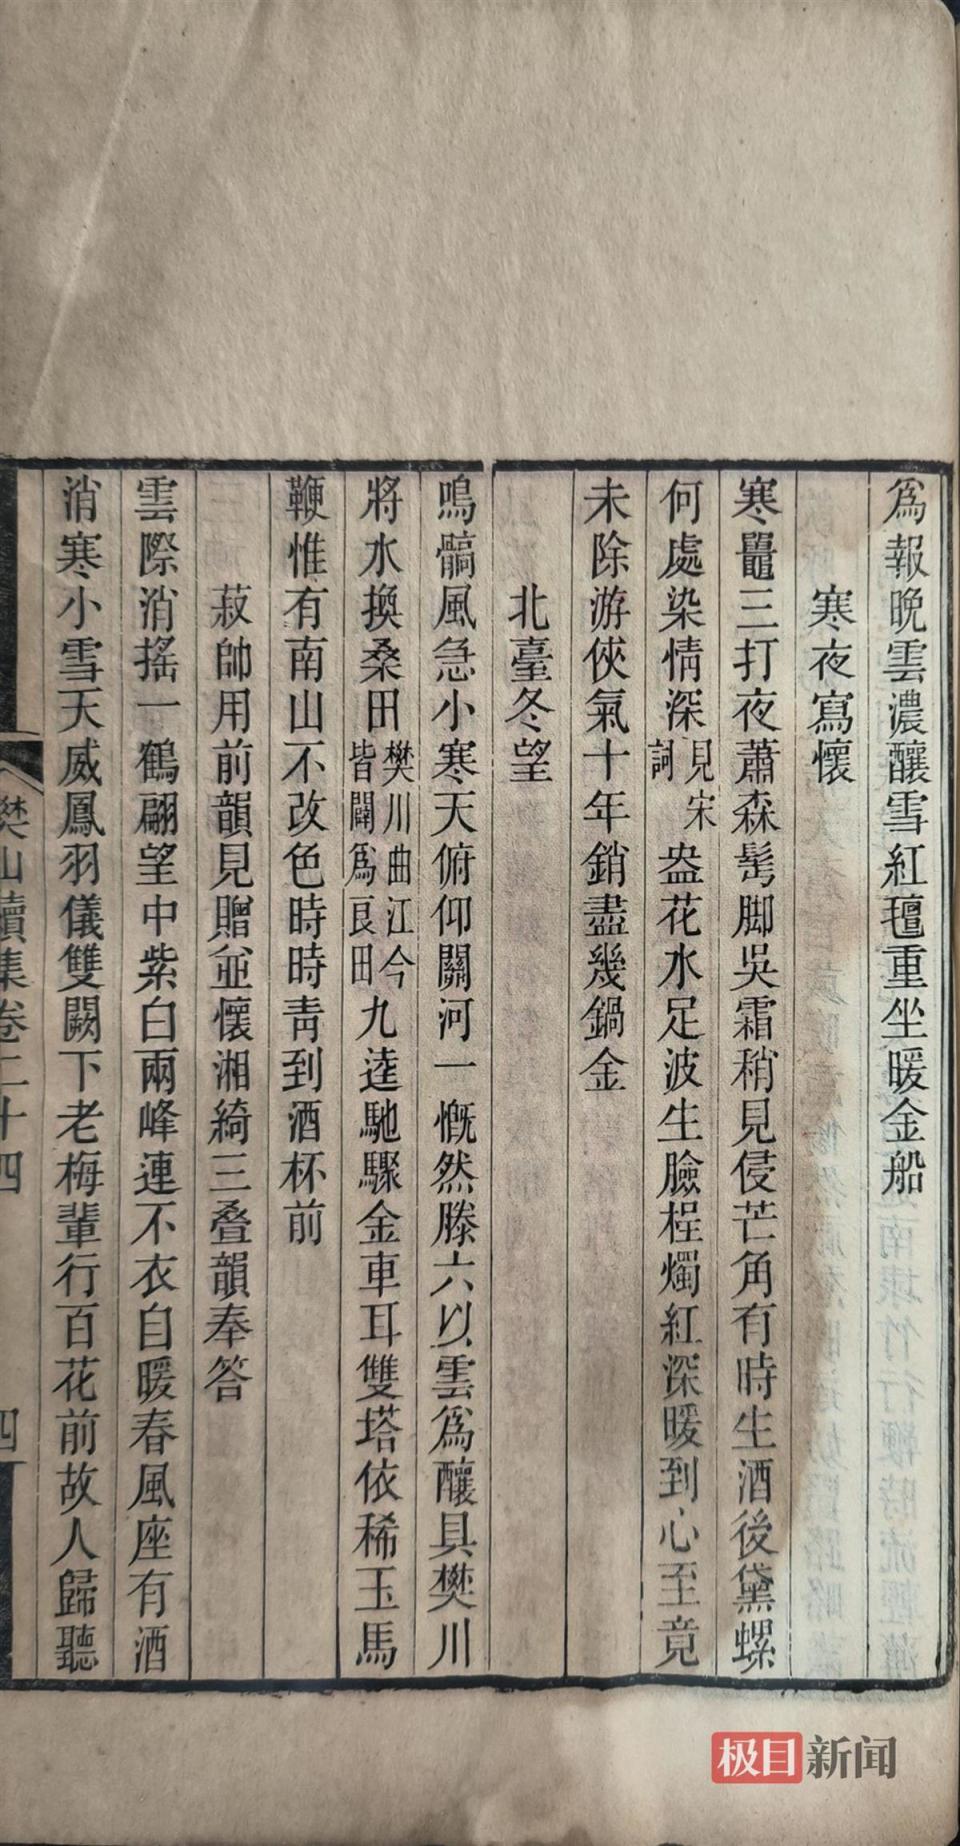 爲報晚雲濃釀雪紅氊重坐暖金船
寒夜寫懷
寒鼉三打夜蕭森髩脚吳霜稍見侵芒角有時生酒後黛螺
何處染情深見宋詞盎花水足波生臉桯燭紅深暖到心至竟
未除游俠氣十年銷盡幾鍋金
北臺冬望
鳴髇風急小寒天俯仰關河一慨然滕六以雲爲釀具樊川
將水換桑田樊川曲江今皆闢爲良田九逵馳驟金車耳雙塔依稀玉馬
鞭惟有南山不改色時時靑到酒杯前
菽帥用前韻見贈並懷湘綺三叠韻奉答
雲際消搖一鶴翩望中紫白兩峰連不衣自暖春風座有酒
消寒小雪天威鳳羽儀雙闕下老梅輩行百花前故人歸聽
樊山續集卷二十四
四
极目新闻